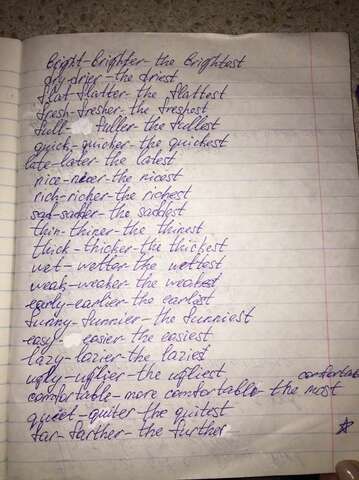 bright-brighter-the brightest
dry-drier-the driest
flat-flatter-the flattest
fresh-fresher-the freshest
full-fuller-the fullest
quick-quicker-the quickest
late-later the latest
nice-nicer-the nicest
rich-richer-the richest
sad-sadder-the saddest
thin-thiner-the thinest
thick-thicker-the thickest
wet-wetter-the wettest
weak-weaker-the weakest
early-earlier-the earliest
funny-funnier-the funniest
easy-easier the easiest
lazy-lazier-the laziest
ugly-uglier-the ugliest
comfortable-more comfortable-the most comfortable
quiet-quiter the quitest
far-farther-the further